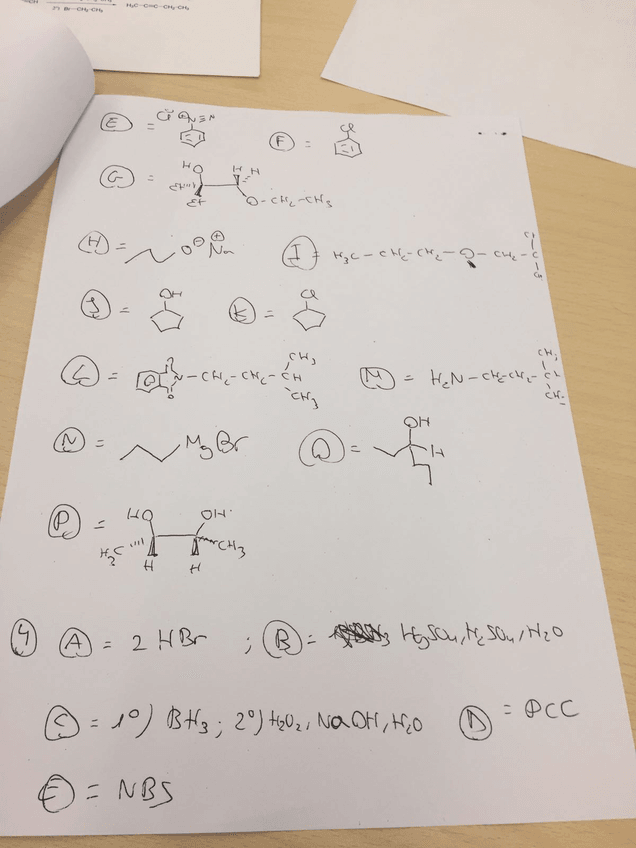 (1) Br-CH₂-CH₃ H₃C-C=C-CH₂-CH₃
E = Cl⊖ ⊕N≡N F = Cl
G = HO H H Et Et O-CH₂-CH₃
H = O⊖ Na⊕ I = H₃C-CH₂-CH₂-O-CH₂-
J = OH K = Cl
L = O N-CH₂-CH₂-CH CH₃ CH₃ O M = H₂N-CH₂-CH₂- CH₃
N = MgBr O = OH H
P = HO OH H₃C H H CH₃
4 A = 2 HBr ; B = HgSO₄, H₂SO₄, H₂O
C = 1°) BH₃ ; 2°) H₂O₂, NaOH, H₂O D = PCC
E = NBS